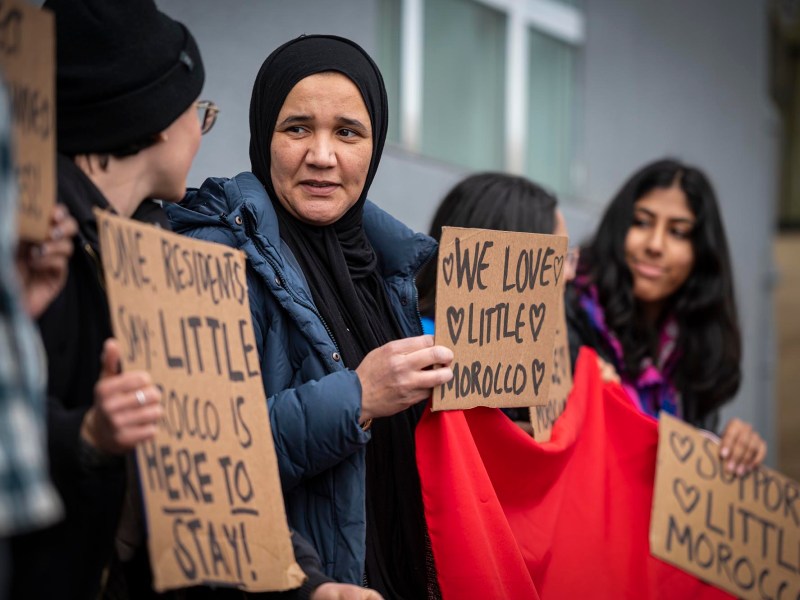 ONE, RESIDENTS
SAY: LITTLE
MOROCCO IS
HERE TO
STAY!
♡WE LOVE♡
♡LITTLE♡
MOROCCO♡
♡SUPPORT
♡LITTLE
MOROCCO